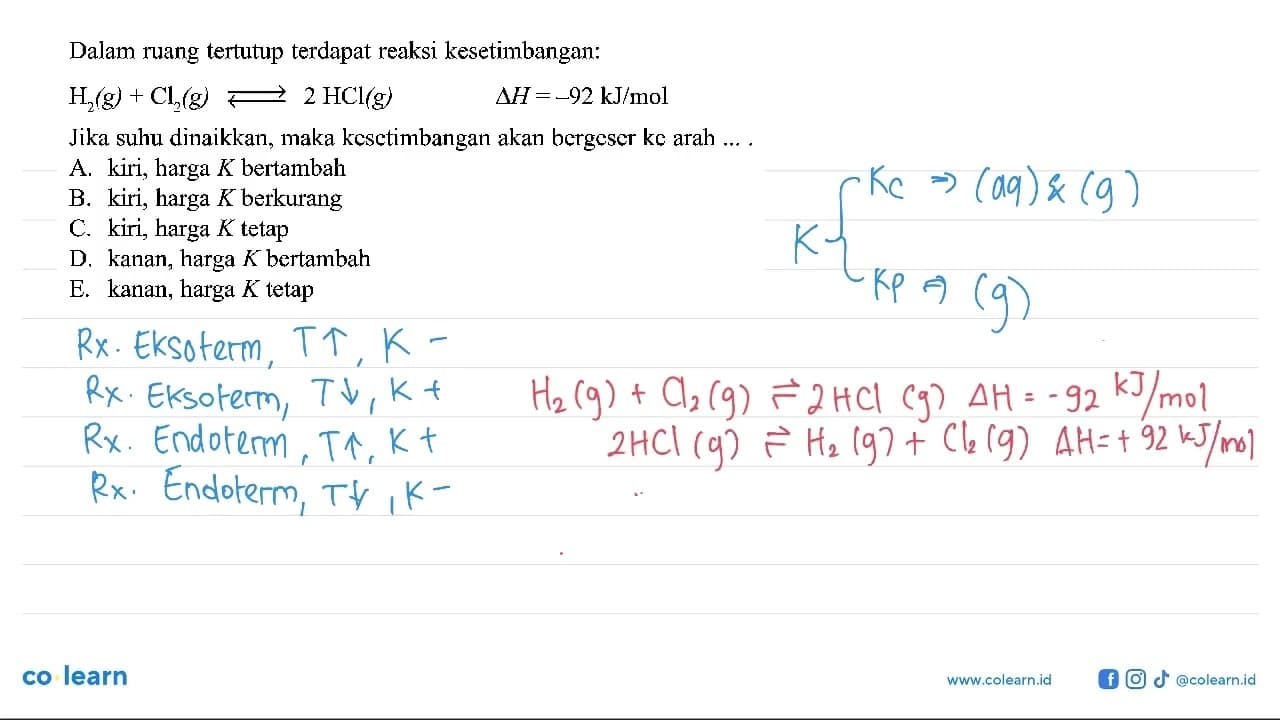 Dalam ruang tertutup terdapat reaksi kesetimbangan:
H₂(g) + Cl₂(g) ⇌ 2 HCl(g) ΔH = –92 kJ/mol
Jika suhu dinaikkan, maka kesetimbangan akan bergeser ke arah ... .
A. kiri, harga K bertambah
B. kiri, harga K berkurang
C. kiri, harga K tetap
D. kanan, harga K bertambah
E. kanan, harga K tetap
Kc ⇒ (aq) & (g)
K
Kp ⇒ (g)
Rx. Eksoterm, T↑, K -
Rx. Eksoterm, T↓, K +
Rx. Endoterm, T↑, K +
Rx. Endoterm, T↓, K -
H₂(g) + Cl₂(g) ⇌ 2HCl (g) ΔH = -92 kJ/mol
2HCl (g) ⇌ H₂(g) + Cl₂(g) ΔH = + 92 kJ/mol
co learn
www.colearn.id
@colearn.id